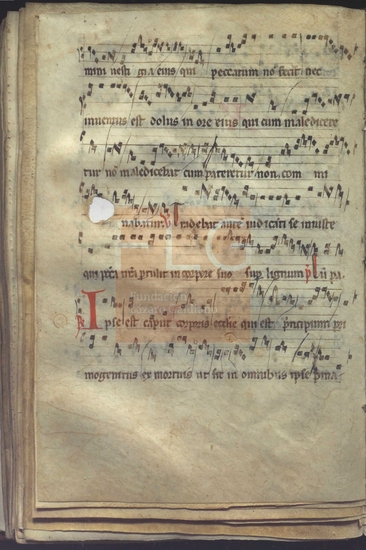 mini vesti gia eius qui peccatum nō fecit nec
inventus est dolus in ore eius qui cum malediceret
tur nō maledicebat cum pateretur non com mi
nabatur Tradebat aute iudicāti se iniuste
qui pcca nrā ptulit in corpore suo sup lignum
Ipse est caput corporis ecclie qui est principium pri
mogenitus ex mortuis ut sit in omnibus ipse